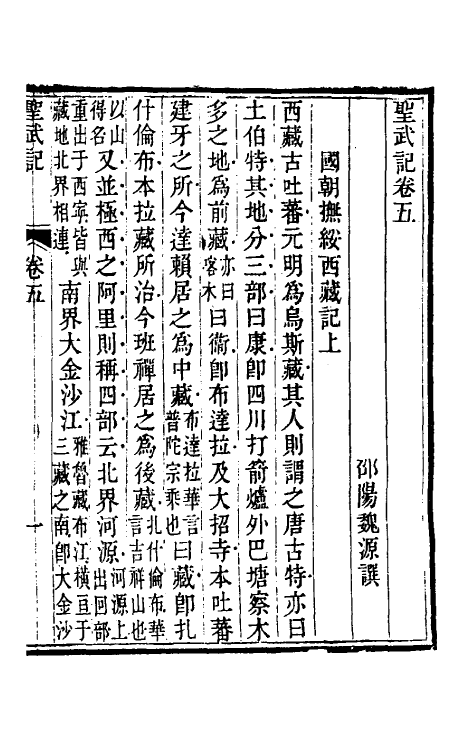 聖武記卷五
邵陽魏源譔
國朝撫綏西藏記上
西藏古吐蕃元明爲烏斯藏其人則謂之唐古特亦曰
土伯特其地分三部曰康卽四川打箭爐外巴塘察木
多之地爲前藏亦曰喀木曰衞卽布達拉及大招寺本吐蕃
建牙之所今達賴居之爲中藏布達拉華言普陀宗乘也曰藏卽扎
什倫布本拉藏所治今班禪居之爲後藏扎什倫布華言吉祥山也
以山得名又並極西之阿里則稱四部云北界河源河源上出回部
重出于西寧皆與藏地北界相連南界大金沙江雅魯藏布江橫亘于三藏之南卽大金沙
聖武記
卷五
一